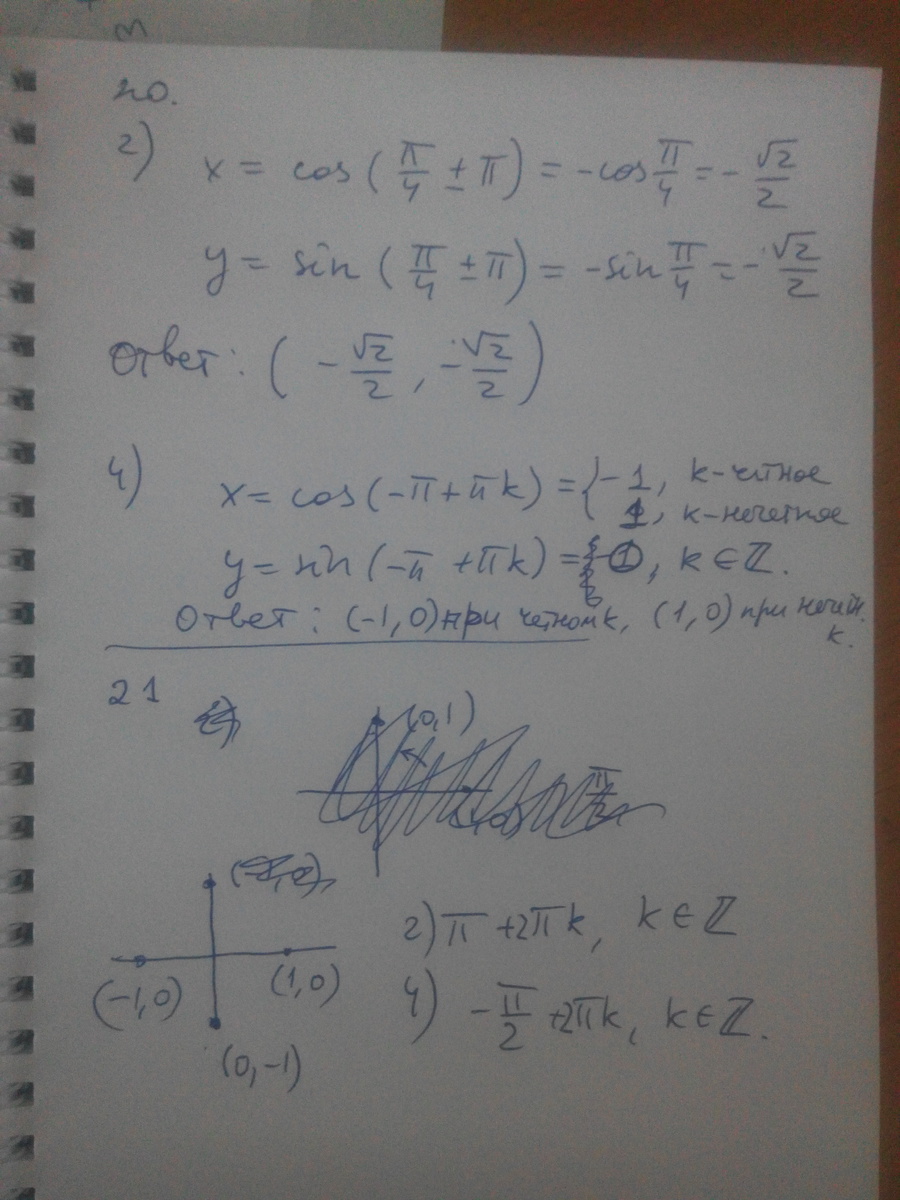 m
20.
2) x = cos(π/4 ± π) = -cos π/4 = - √2/2
y = sin(π/4 ± π) = -sin π/4 = - √2/2
Ответ: (- √2/2, - √2/2)
4) x = cos(-π + πk) = { -1, k-четное
1, k-нечетное
y = sin(-π + πk) = 0, k ∈ ℤ.
Ответ: (-1,0) при четном k, (1,0) при нечетн.
k.
21
(0,1)
π/2
(-1,0) (1,0)
(0,-1)
2) π + 2πk, k ∈ ℤ
4) - π/2 + 2πk, k ∈ ℤ.